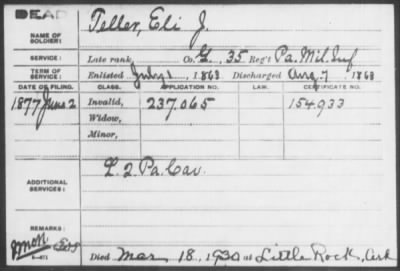 DEAD
NAME OF SOLDIER: Teller, Eli J.
SERVICE: Late rank Co. G, 35 Reg't Pa. Mil. Inf
TERM OF SERVICE: Enlisted July 1, 1863 Discharged Aug. 7, 1863
DATE OF FILING. CLASS. APPLICATION NO. LAW. CERTIFICATE NO.
1877 June 2 Invalid, 237.065 154.933
Widow,
Minor,
ADDITIONAL SERVICES: L 2 Pa. Cav.
REMARKS:
Died Mar 18, 1930 at Little Rock, Ark